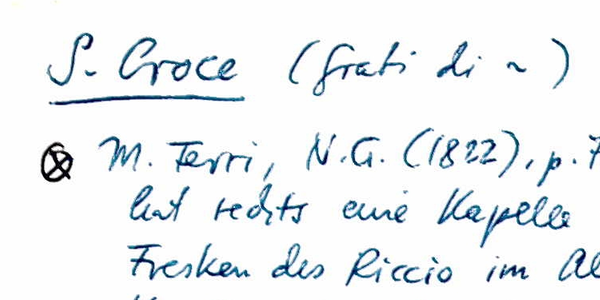 S. Croce (frati di ~)
M. Ferri, N.G. (1822), p. 7
hat rechts eine Kapelle
Fresken des Riccio im Al